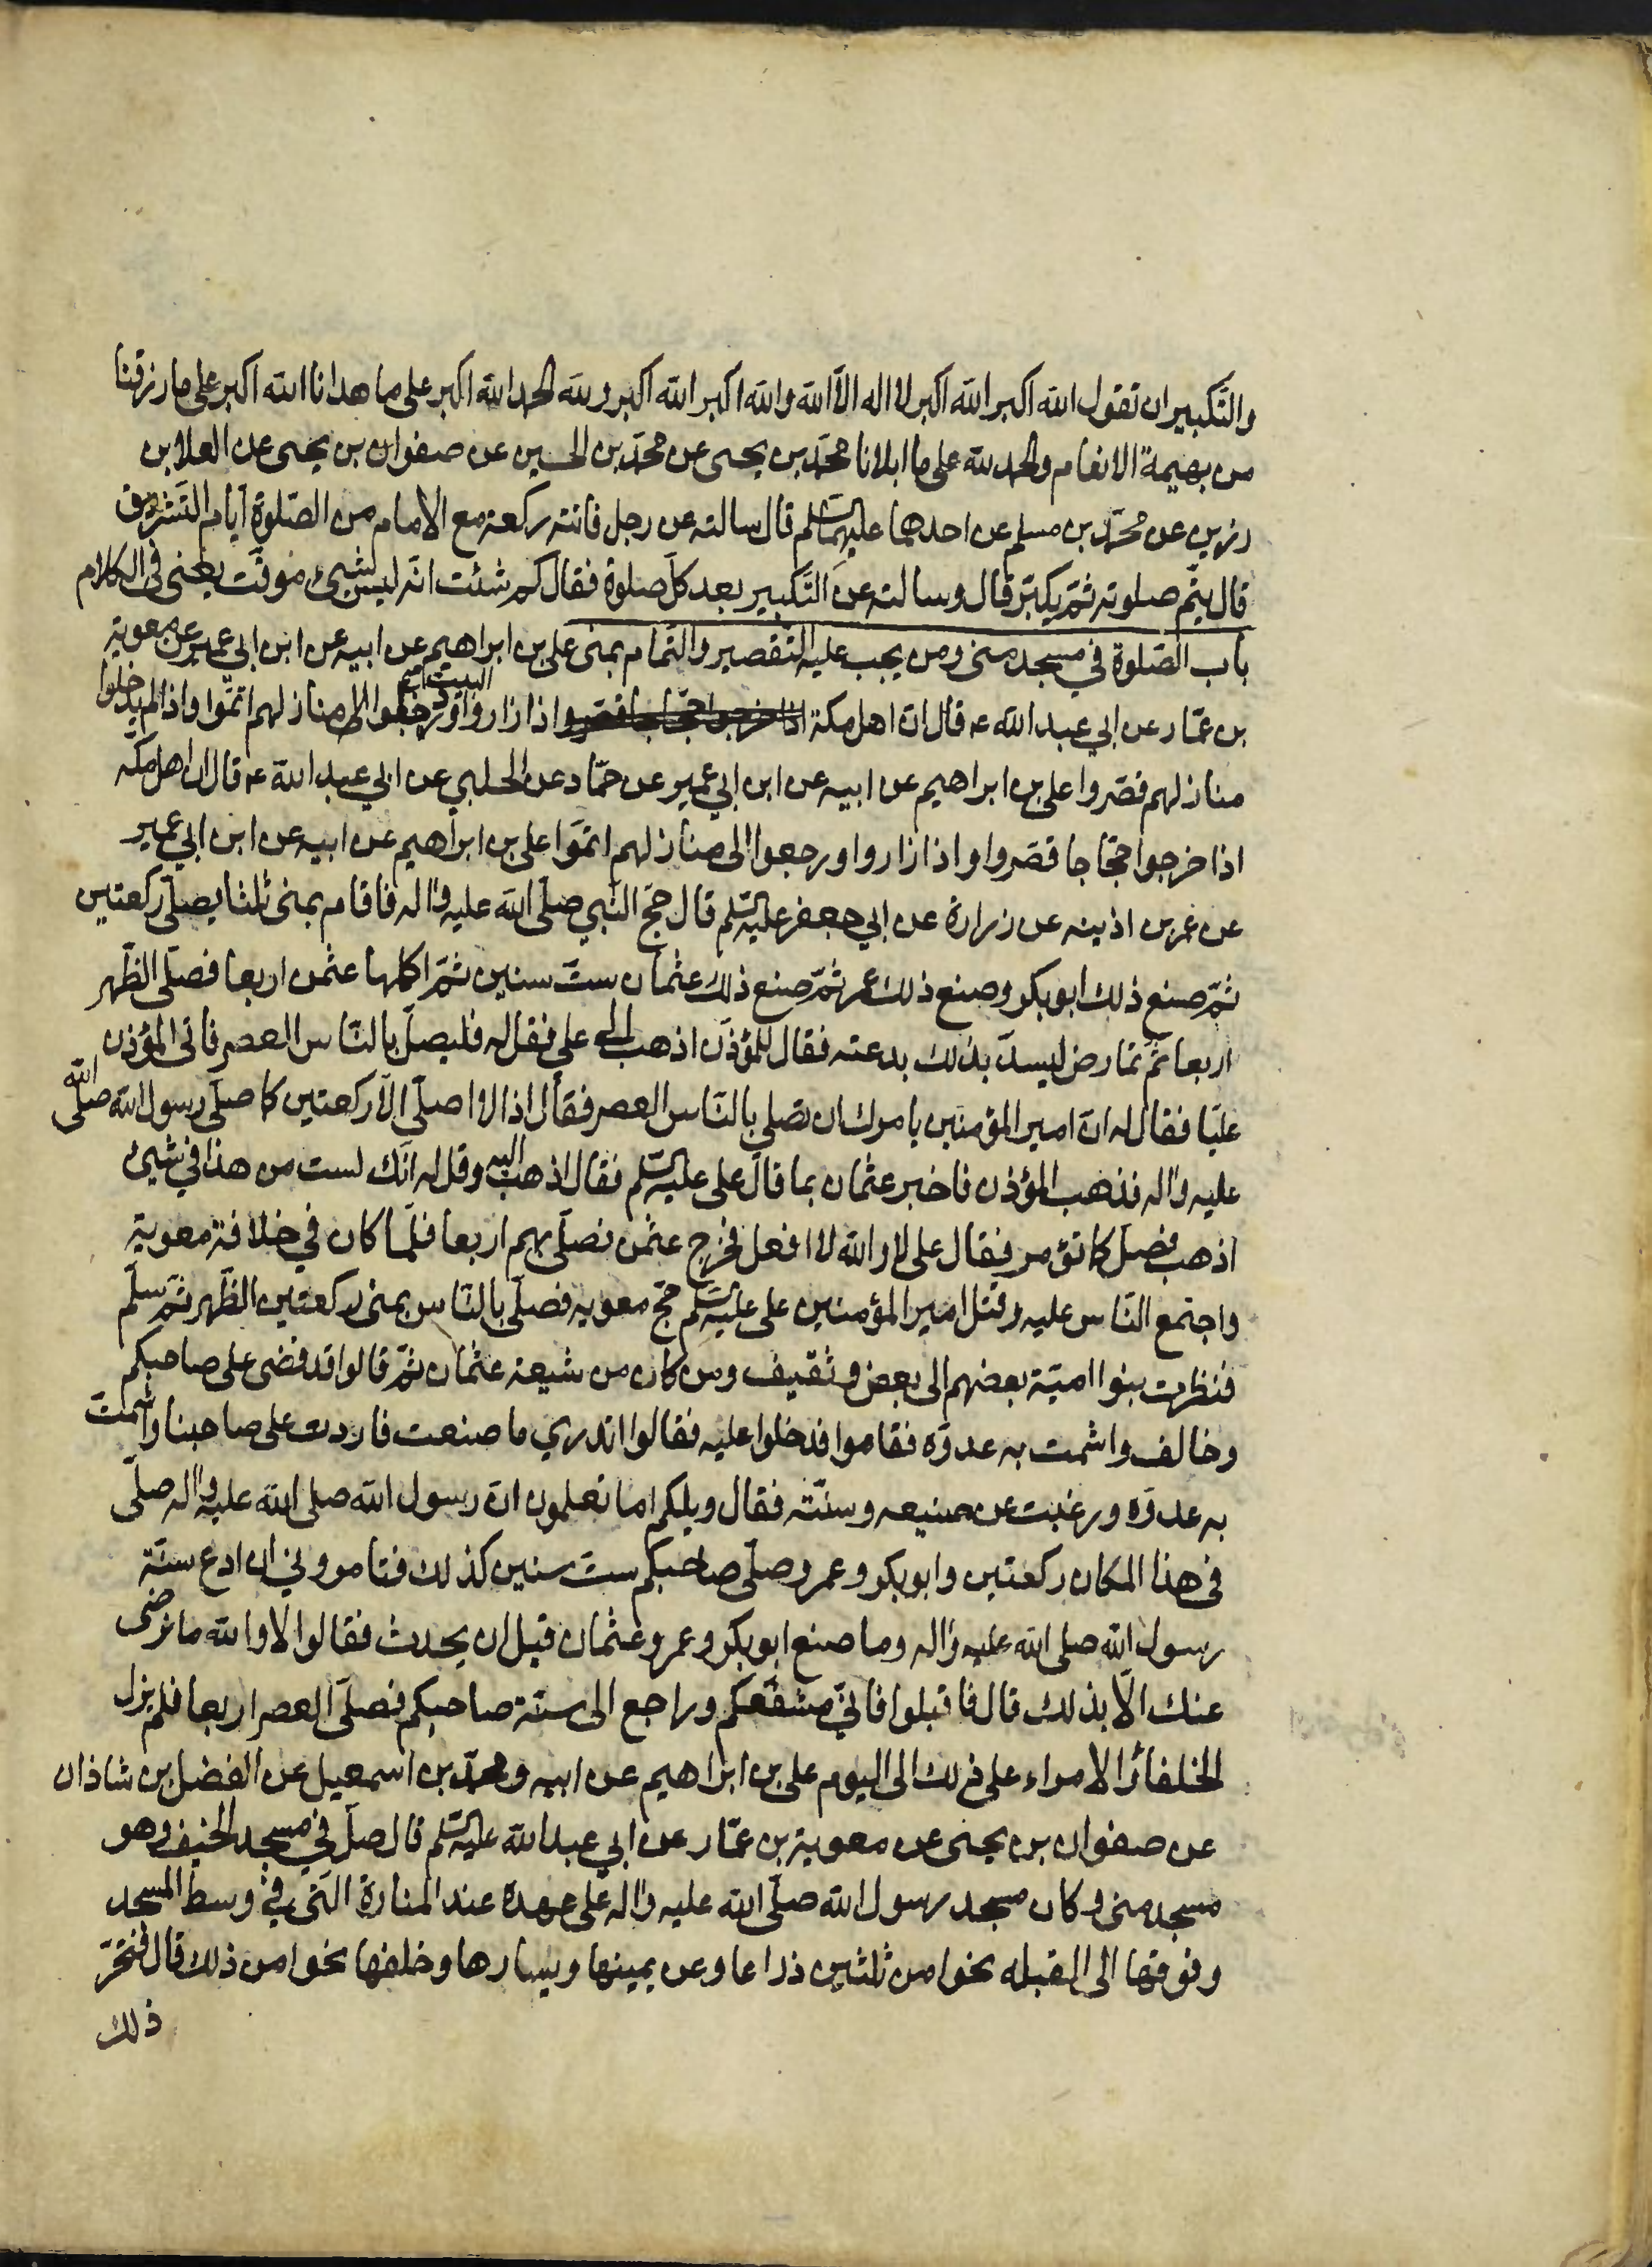 والتّكبير ان تقول الله اكبر الله اكبر لا اله الّا الله والله اكبر الله اكبر ولله الحمد الله اكبر على ما هدانا الله اكبر على ما رزقنا
من بهيمة الانعام والحمد لله على ما ابلانا محمّد بن يحيى عن محمّد بن الحسين عن صفوان بن يحيى عن العلا بن
رزين عن محمّد بن مسلم عن احدهما عليهما السّلم قال سالته عن رجل فاتته ركعة مع الامام من الصّلوة ايّام التّشريق
قال يتّم صلوته ثمّ يكبّر قال وسالته عن التّكبير بعد كلّ صلوة فقال كم شئت انّه ليس شيئ موقّت يعنى فى الكلام
باب الصّلوة في مسجد منى ومن يجب عليه التّقصير والتّمام بمنى على بن ابراهيم عن ابيه عن ابن ابي عمير عن معوية
بن عمّار عن ابي عبد الله ع قال انّ اهل مكة اذا خرجوا حجّاجا قصّروا واذا زاروا البيت ورجعوا الى منازلهم اتمّوا واذا لم يدخلوا
منازلهم قصّروا على بن ابراهيم عن ابيه عن ابن ابي عمير عن حمّاد عن الحلبي عن ابي عبد الله ع قال انّ اهل مكّه
اذا خرجوا حجّاجا قصّروا واذا زاروا ورجعوا الى منازلهم اتمّوا على بن ابراهيم عن ابيه عن ابن ابي عمير
عن عمر بن اذينه عن زرارة عن ابي جعفر عليه السّلم قال حجّ النّبي صلّى الله عليه واله فاقام بمنى ثلثا يصلّي ركعتين
ثمّ صنع ذلك ابو بكر وصنع ذلك عمر ثمّ صنع ذلك عثمان ستّ سنين ثمّ اكملها عثمن اربعا فصلّى الظّهر
اربعا ثمّ تمارض ليسدّ بذلك بدعته فقال للمؤذّن اذهب الى علي فقل له فليصلّ بالنّاس العصر فاتى المؤذن
عليّا فقال له انّ امير المؤمنين يامرك ان تصلي بالنّاس العصر فقال اذا لا اصلّي الّا ركعتين كما صلّى رسول الله صلّى الله
عليه واله فذهب المؤذن فاخبر عثمان بما قال على عليه السّلم فقال اذهب اليه وقل له انّك لست من هذا في شيئ
اذهب فصلّ كما تؤمر فقال على لا والله لا افعل فخرج عثمن فصلّى بهم اربعا فلمّا كان في خلافة معوية
واجتمع النّاس عليه وقتل امير المؤمنين على عليه السّلم حجّ معويه فصلّى بالنّاس بمنى ركعتين الظّهر ثمّ سلّم
فنظرت بنوا اميّة بعضهم الى بعض وثقيف ومن كان من شيعة عثمان ثمّ قالوا قد قضى على صاحبكم
وخالف واشمت به عدوّه فقاموا فدخلوا عليه فقالوا اتدري ما صنعت ما زدت على صاحبنا واشمّت
به عدوّه ورغبت عن صنيعه وسنّته فقال ويلكم اما تعلمون انّ رسول الله صلى الله عليه واله صلّى
فى هذا المكان ركعتين وابو بكر وعمر وصلّى صاحبكم ستّ سنين كذلك فتامروني ان ادع سنّة
رسول الله صلى الله عليه واله وما صنع ابو بكر وعمر وعثمان قبل ان يحدث فقالوا لا والله ما نرضى
عنك الّا بذلك قال فاقبلوا فانّي مشفّعكم وراجع الى سنّة صاحبكم فصلّى العصر اربعا فلم يزل
الخلفاء والامراء على ذلك الى اليوم على بن ابراهيم عن ابيه ومحمّد بن اسمعيل عن الفضل بن شاذان
عن صفوان بن يحيى عن معوية بن عمّار عن ابي عبد الله عليه السّلم قال صلّ في مسجد الخيف وهو
مسجد منى وكان مسجد رسول الله صلّى الله عليه واله على عهده عند المنارة الّتى في وسط المسجد
وفوقها الى القبله نحوا من ثلثين ذراعا وعن يمينها ويسارها وخلفها نحوا من ذلك قال فتحرّ
ذلك